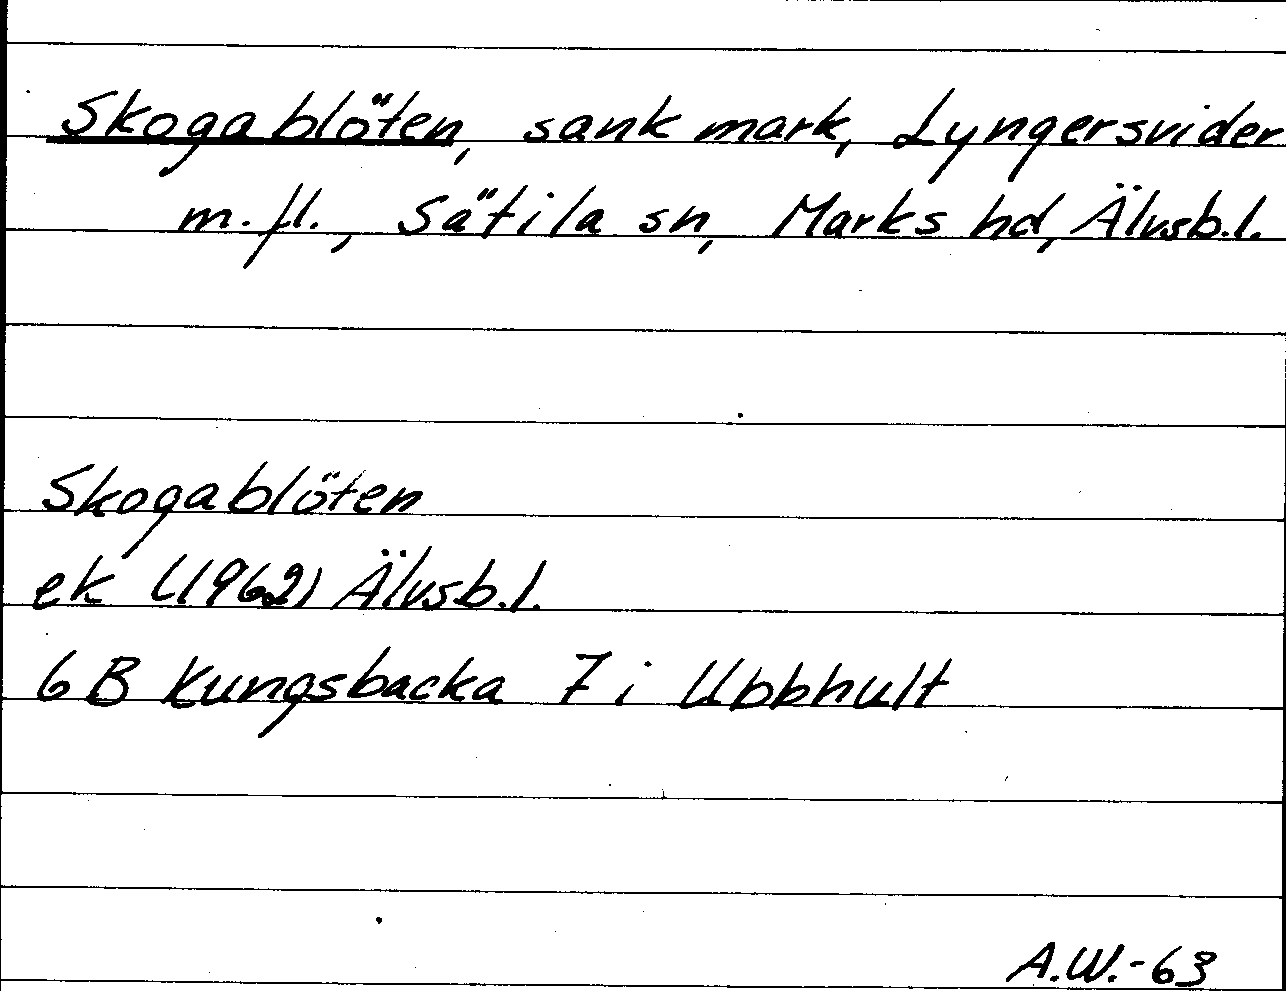 Skogablöten, sank mark, Lyngersvider
m.fl., Sätila sn, Marks hd, Älvsb.l.
Skogablöten
ek (1962) Älvsb.l.
6B Kungsbacka 7i Ubbhult
A.W.-63